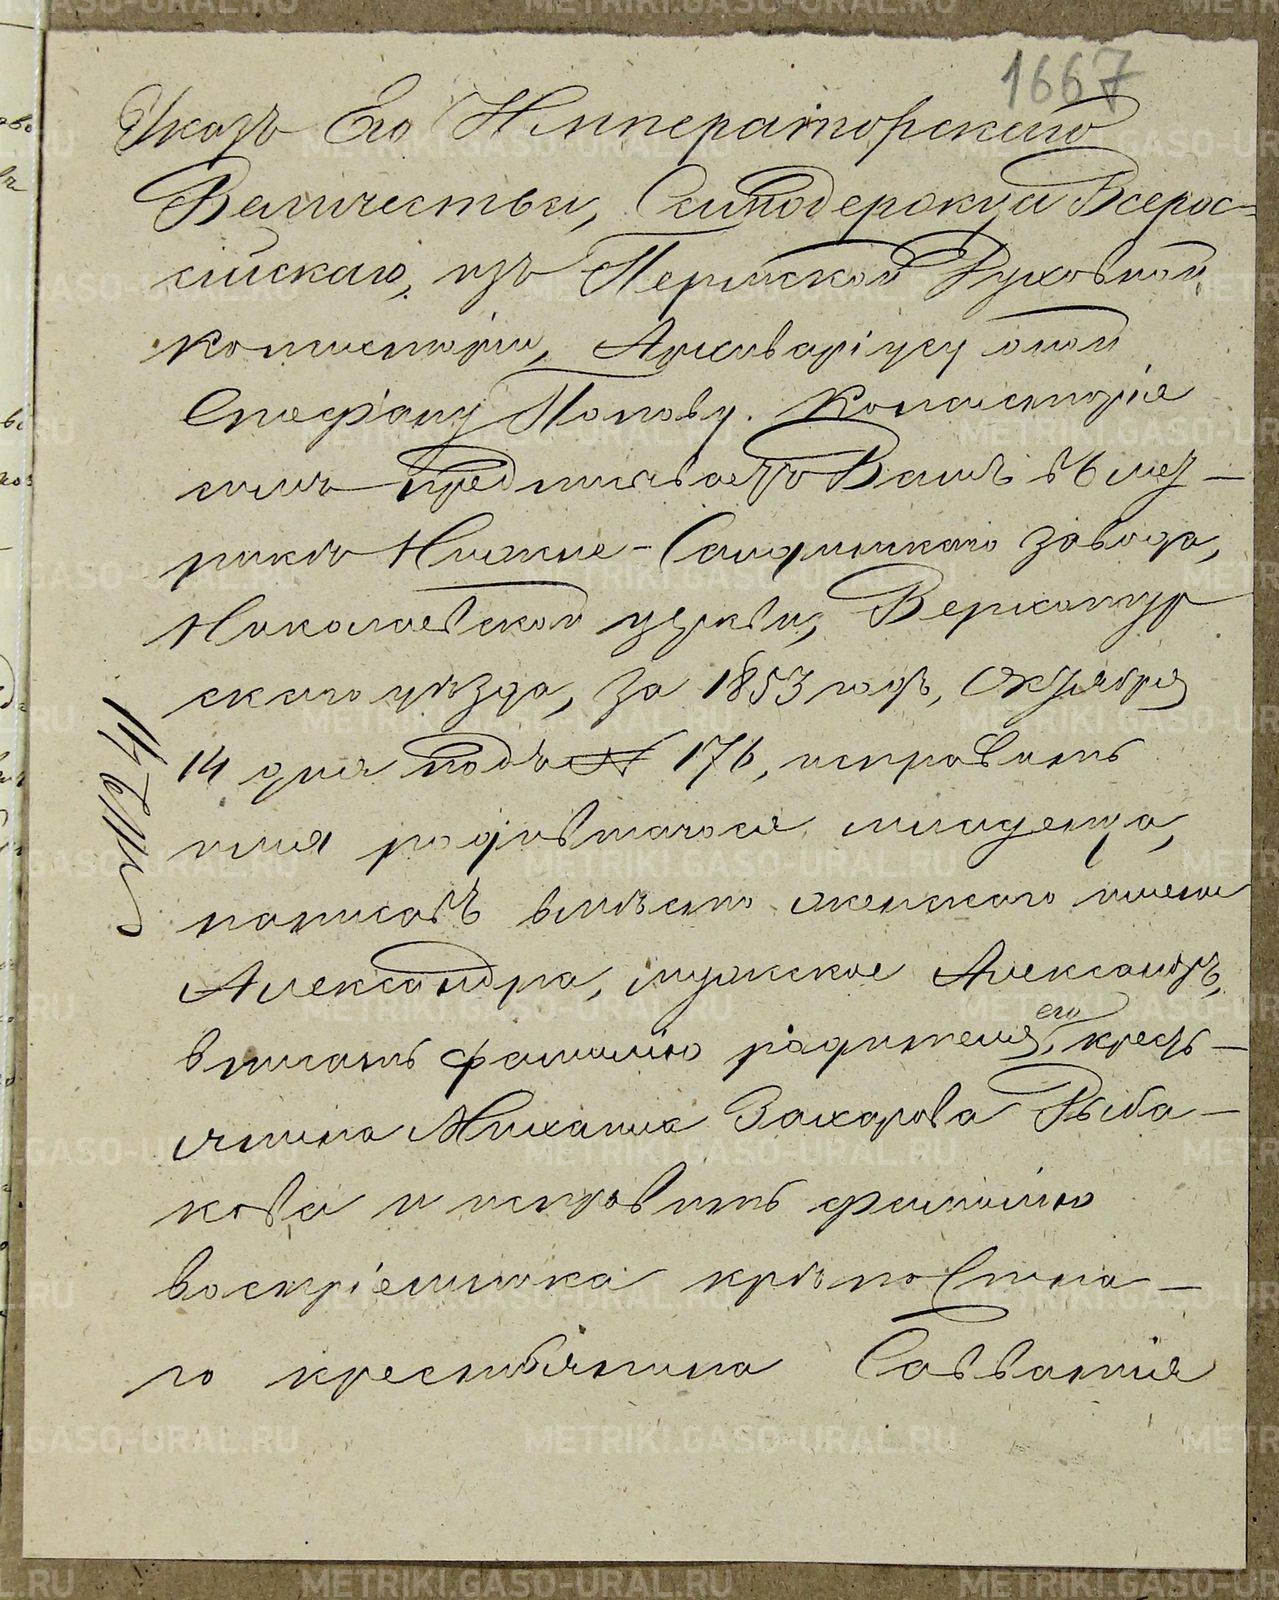 1667
Указъ Его Императорскаго
Величества, Самодержца Всерос-
сійскаго, изъ Пермской Духовной
Консисторіи, Архиваріусу оной
Стефану Попову. Консисторія
симъ предписываетъ Вамъ въ мет-
рикѣ Нижне-Салдинскаго завода,
Николаевской церкви, Верхотур
скаго уѣзда, за 1853 годъ, Октября
14 дня подъ № 176, исправить
имя родившагося младенца,
написавъ вмѣсто женскаго имени
Александра, мужское Александръ,
вписать фамилію родителя его, кресть-
янина Михаила Захарова Рыба-
кова и исправить фамилію
воспріемника крѣпостна-
го крестьянина Савватія